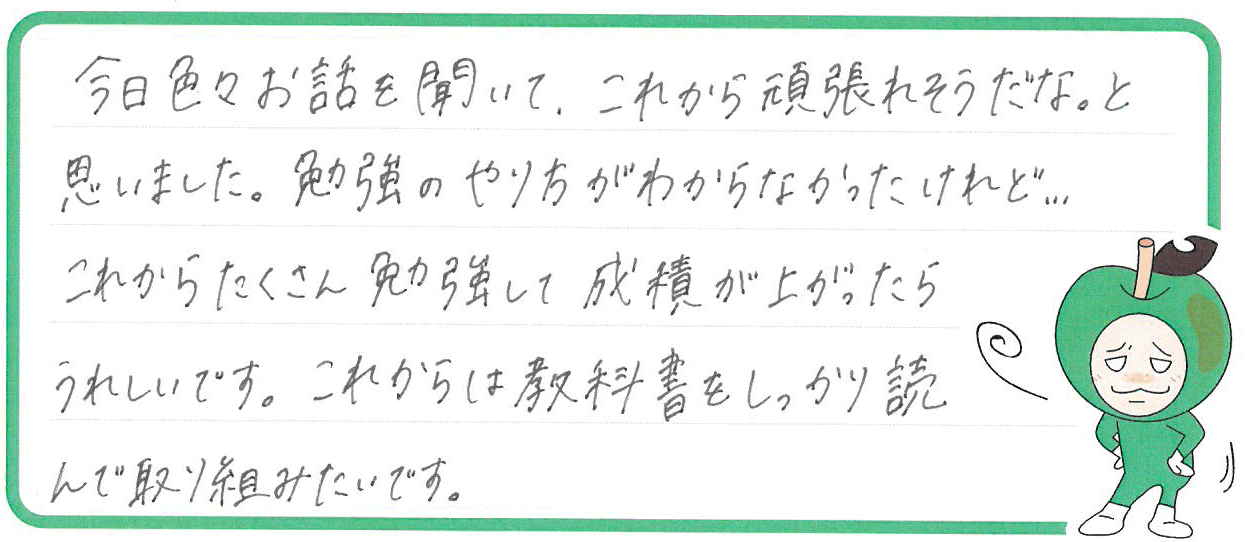 今日色々お話を聞いて、これから頑張れそうだな。と
思いました。勉強のやり方がわからなかったけれど…
これからたくさん勉強して成績が上がったら
うれしいです。これからは教科書をしっかり読
んで取り組みたいです。